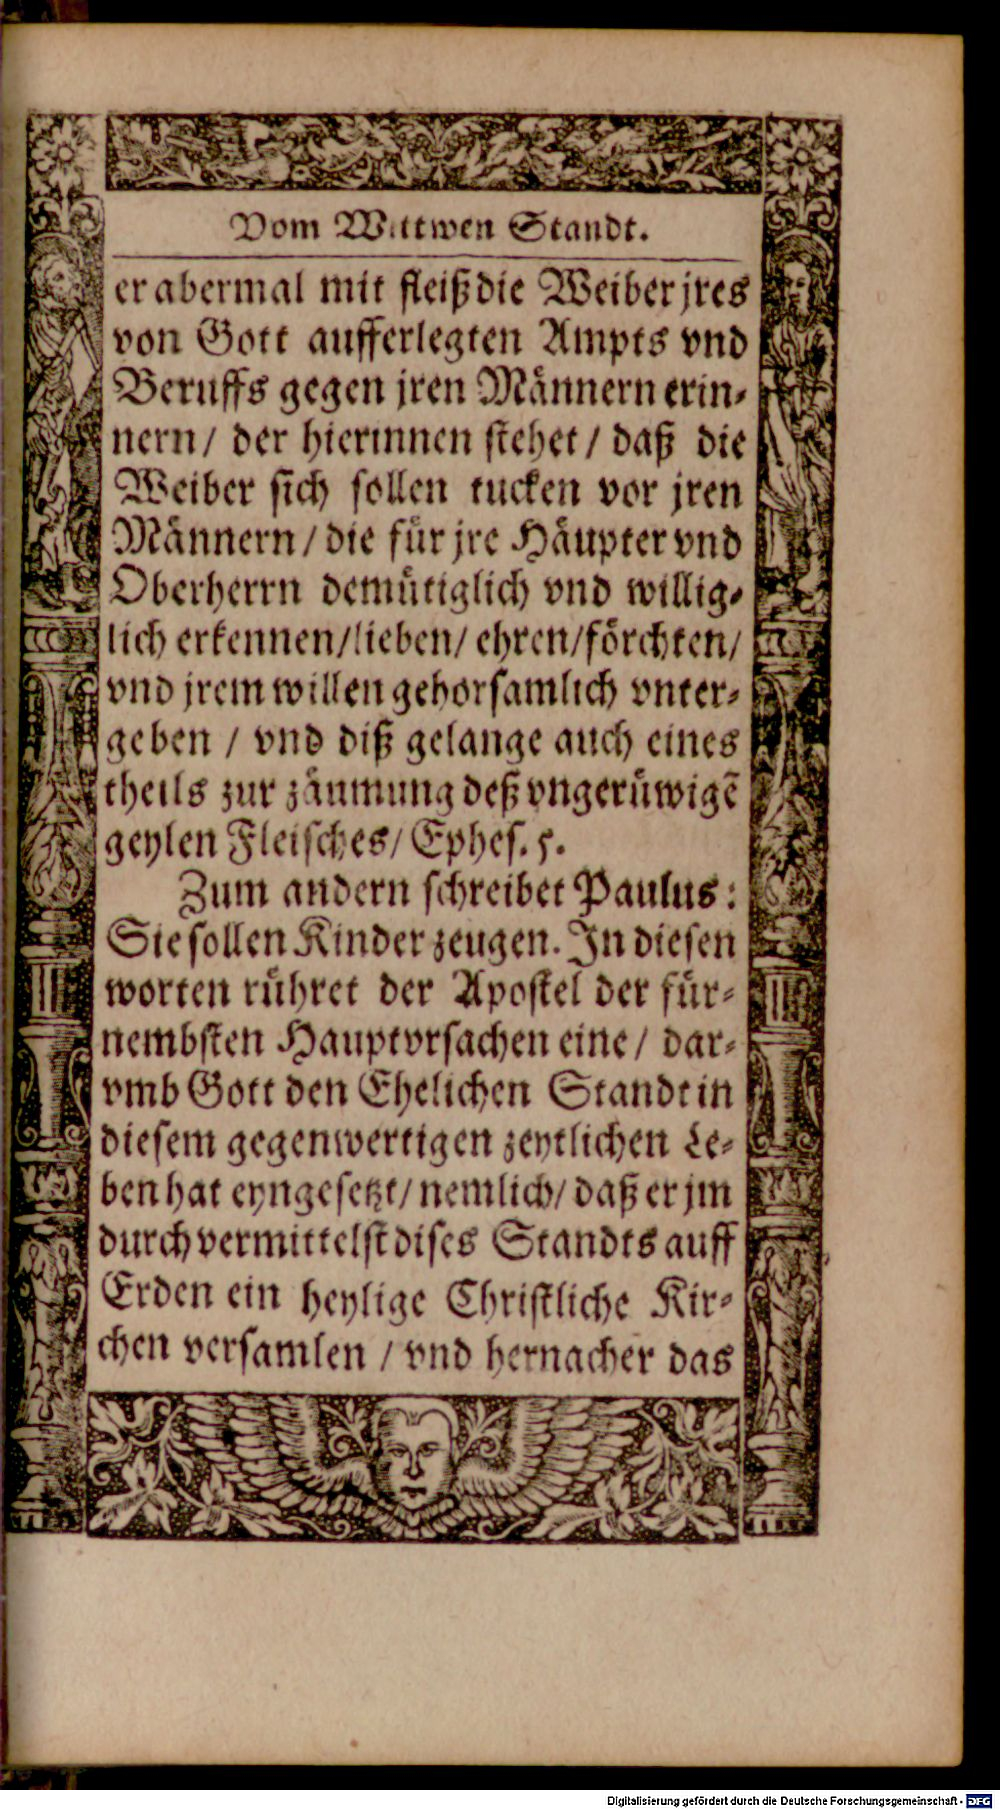 Vom Wittwen Standt.
er abermal mit fleiß die Weiber jres
von Gott aufferlegten Ampts vnd
Beruffs gegen jren Männern erin-
nern / der hierinnen stehet / daß die
Weiber sich sollen tucken vor jren
Männern / die für jre Häupter vnd
Oberherrn demütiglich vnd willig-
lich erkennen / lieben / ehren / förchten /
vnd jrem willen gehorsamlich vnter-
geben / vnd diß gelange auch eines
theils zur zäumung deß vngerüwigẽ
geylen Fleisches / Ephes. 5.
Zum andern schreibet Paulus:
Sie sollen Kinder zeugen. In diesen
worten rühret der Apostel der für-
nembsten Hauptvrsachen eine / dar-
vmb Gott den Ehelichen Standt in
diesem gegenwertigen zeytlichen Le-
ben hat eyngesetzt / nemlich / daß er jm
durch vermittelst dises Standts auff
Erden ein heylige Christliche Kir-
chen versamlen / vnd hernacher das
Digitalisierung gefördert durch die Deutsche Forschungsgemeinschaft - DFG